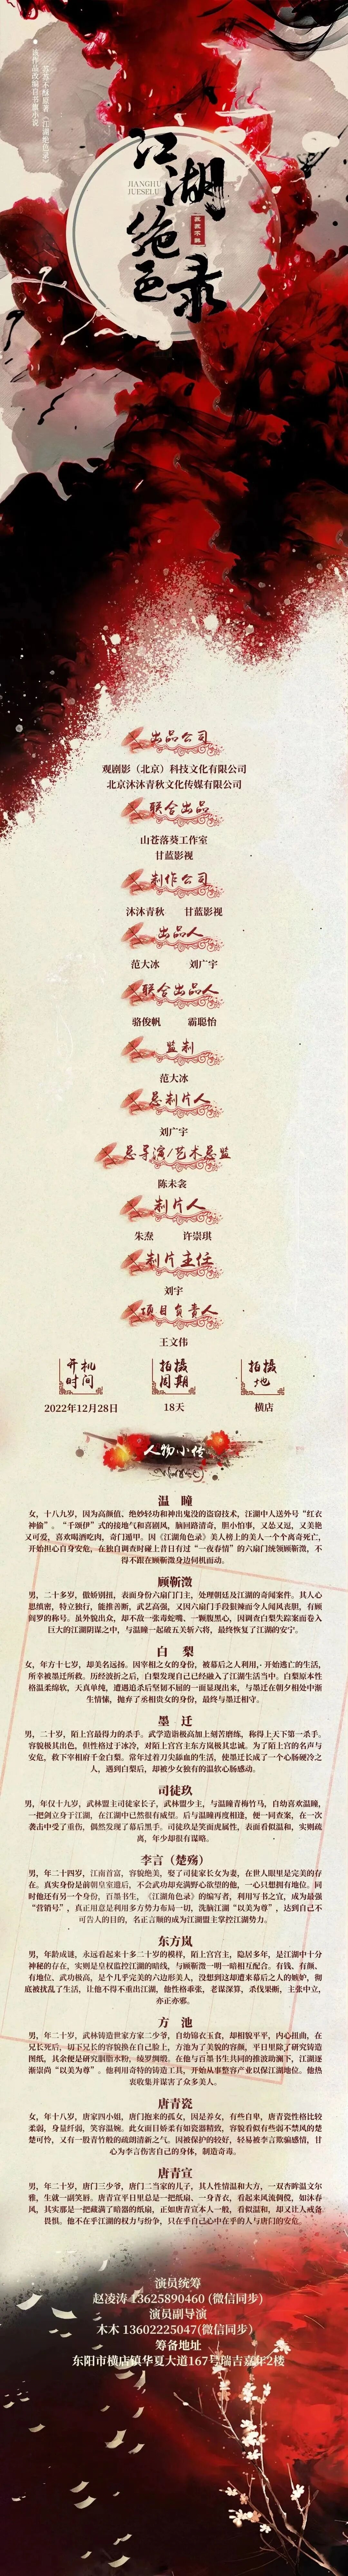 莪莪不酥原著《江湖绝色录》
该作品改编自书旗小说
江湖
绝色录
JIANGHU
JUESELU
出品公司
观剧影（北京）科技文化有限公司
北京沐沐青秋文化传媒有限公司
联合出品
山苍落葵工作室
甘蓝影视
制作公司
沐沐青秋 甘蓝影视
出品人
范大冰 刘广宇
联合出品人
骆俊帆 霸聪怡
监制
范大冰
总制片人
刘广宇
总导演/艺术总监
陈未衾
制片人
朱焘 许崇琪
制片主任
刘宇
项目负责人
王文伟
开机时间 拍摄周期 拍摄地
2022年12月28日 18天 横店
人物小传
温 瞳
女，十八九岁，因为高颜值、绝妙轻功和神出鬼没的盗窃技术，江湖中人送外号“红衣
神偷”。“千颂伊”式的接地气和喜剧风，脑回路清奇，胆小怕事，又怂又逗，又美艳
又可爱，喜欢喝酒吃肉，奇门遁甲。因《江湖角色录》美人榜上的美人一个个离奇死亡，
开始担心自身安危，在独自调查时碰上昔日有过“一夜春情”的六扇门统领顾靳微，不
得不跟在顾靳微身边伺机而动。
顾靳微
男，二十多岁，傲娇别扭，表面身份六扇门门主，处理朝廷及江湖的奇闻案件。其人心
思缜密，特立独行，能推善断，武艺高强，又因六扇门手段很辣而令人闻风丧胆，有顾
阎罗的称号。虽外貌出众，却不敌一张毒蛇嘴、一颗腹黑心，因调查白梨失踪案而卷入
巨大的江湖阴谋之中，与温瞳一起破五关斩六将，最终恢复了江湖的安宁。
白 梨
女，年方十七岁，却美名远扬。因宰相之女的身份，被幕后之人利用，开始逃亡的生活，
所幸被墨迁所救。历经波折之后，白梨发现自己已经融入了江湖生活当中。白梨原本性
格温柔绵软，天真单纯，遭遇追杀后坚韧不屈的一面显现出来，与墨迁在朝夕相处中渐
生情愫，抛弃了丞相贵女的身份，最终与墨迁相守。
墨 迁
男，二十岁，陌上宫最得力的杀手。武学造诣极高加上刻苦磨练，称得上天下第一杀手。
容貌极其出色，但性格过于冰冷，对陌上宫宫主东方岚极其忠诚。为了陌上宫的名声与
安危，救下宰相府千金白梨。常年过着刀尖舔血的生活，使墨迁长成了一个心肠硬冷之
人，遇到白梨后，却被少女独有的温软心肠感动。
司徒玖
男，年仅十九岁，武林盟主司徒家长子，武林盟少主，与温瞳青梅竹马，自幼喜欢温瞳，
一把剑立身于江湖，在江湖中已然很有威望。后与温瞳再度相逢，便一同查案，在一次
袭击中受了重伤，偶然发现了幕后黑手。司徒玖是笑面虎属性，表面看似温和，实则疏
离，年少却很有谋略。
李言（楚殇）
男，年二十四岁，江南首富，容貌绝美，娶了司徒家长女为妻，在世人眼里是完美的存
在。真实身份是前朝皇室遗后，不会武功却充满野心欲望的他，一心只想拥有地位。同
时他还有另一个身份，百墨书生，《江湖角色录》的编写者，利用写书之宜，成为最强
“营销号”，真正用意是利用多方势力布局一切，洗脑江湖“以美为尊”，达到自己不
可告人的目的，名正言顺的成为江湖盟主掌控江湖势力。
东方岚
男，年龄成谜，永远看起来十多二十岁的模样，陌上宫宫主，隐居多年，是江湖中十分
神秘的存在，实则是皇权监控江湖的暗线，与顾靳微一明一暗相互配合。有钱、有颜、
有地位、武功极高，是个几乎完美的六边形美人，没想到这却遭来幕后之人的嫉妒，彻
底被扰乱了生活，让他不得不重出江湖，他性格乖张，老谋深算，杀伐果断，主张中立，
亦正亦邪。
方 池
男，年二十岁，武林铸造世家方家二少爷，自幼锦衣玉食，却相貌平平，内心扭曲，在
兄长死后，切下兄长的容貌换在自己脸上，方池为了美貌的容颜，平日里除了研究铸造
图纸，其余便是研究胭脂水粉，绫罗绸缎。在他与百墨书生共同的推波助澜下，江湖逐
渐崇尚“以美为尊”。他利用奇特的铸造工具，开始从事整容产业以保江湖地位。他热
衷收集并谋害了众多美人。
唐青瓷
女，年十八岁，唐家四小姐，唐门抱来的孤女，因是养女，有些自卑，唐青瓷性格比较
柔弱，身量纤弱，笑容温婉。此女面目娇柔有如瓷器精致，容貌看似有些弱不禁风的楚
楚可怜，又有一股青竹般的疏朗清新之气。因被保护的较好，轻易被李言欺骗感情，甘
心为李言伤害自己的身体，制造奇毒。
唐青宣
男，年二十岁，唐门三少爷，唐门二当家的儿子，其人性情温和大方，一双杏眸温文尔
雅，生就一副笑唇。唐青宣平日里总是一把纸扇、一身青衣，看起来风流倜傥，如沐春
风，其实那是一把藏满了暗器的纸扇，正如唐青宣本人一般，看似温和，却又让人戒备
畏惧。他不在乎江湖的权力与纷争，只在乎自己心中在乎的人与唐门的安危。
演员统筹
赵凌涛 13625890460 (微信同步)
演员副导演
木木 13602225047(微信同步)
筹备地址
东阳市横店镇华夏大道167号瑞吉嘉年2楼